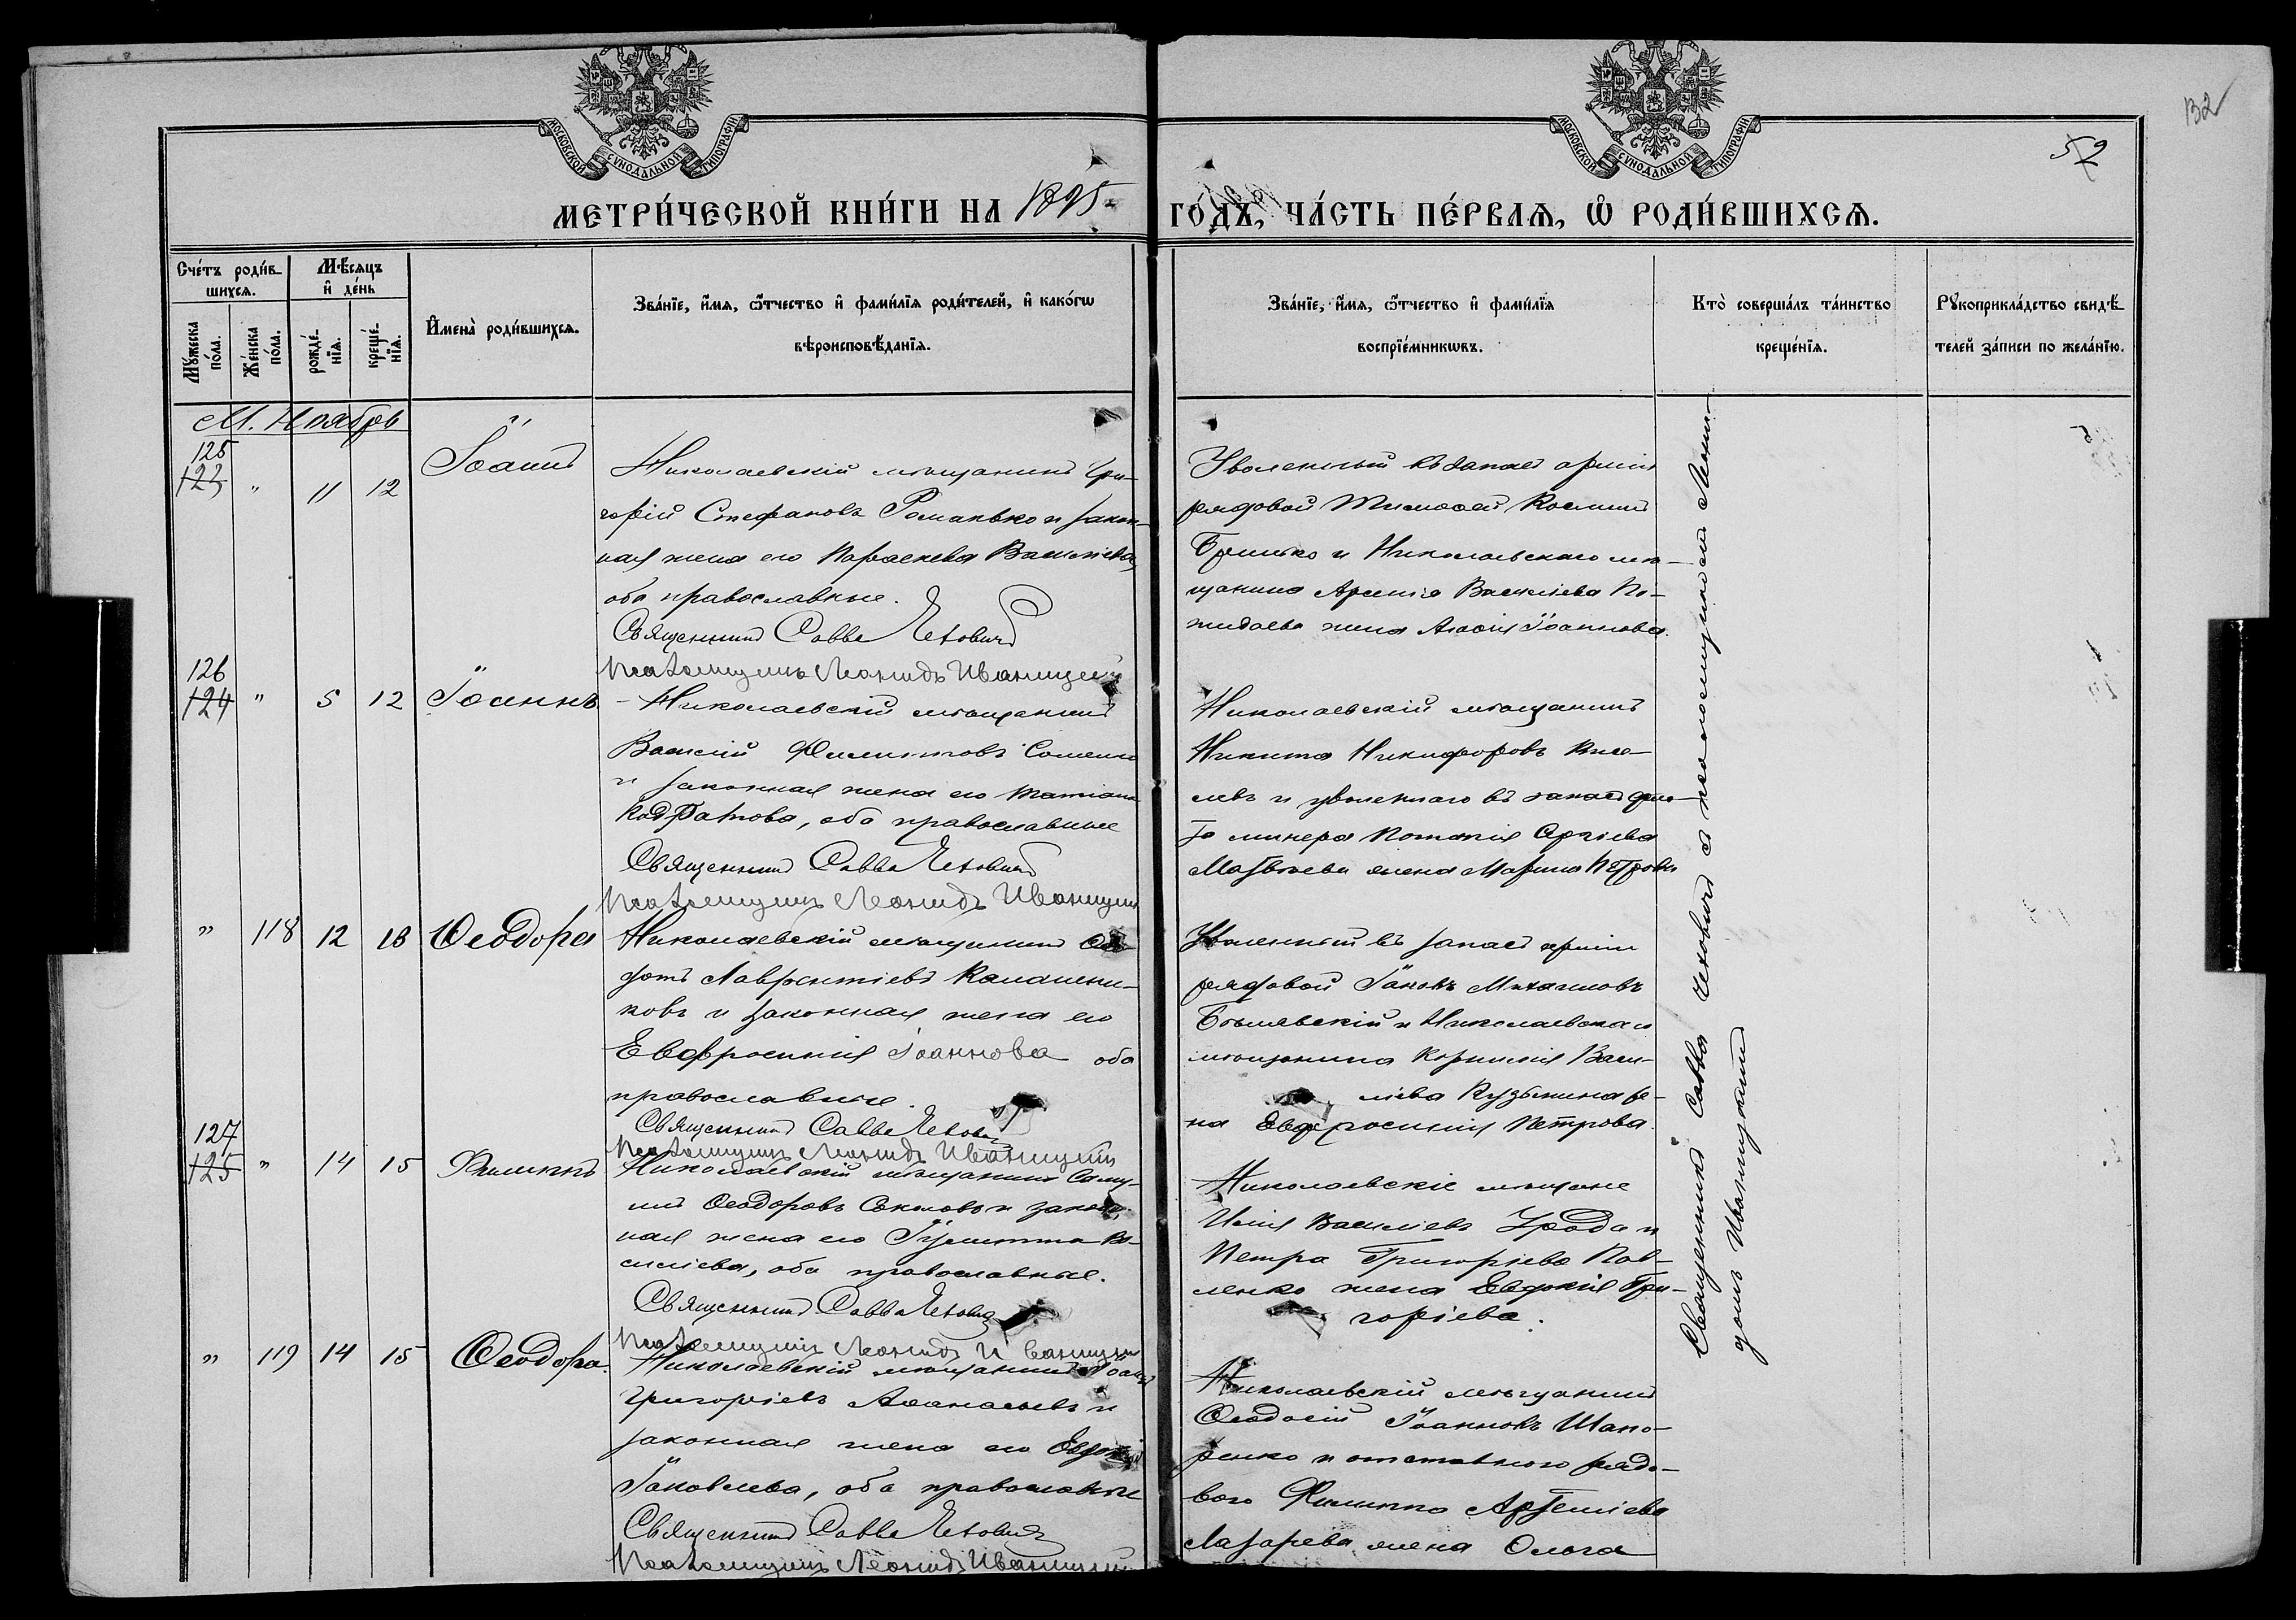 132
52
МОСКОВСКОЙ СѴНОДАЛЬНОЙ ТИПОГРАФІИ
МОСКОВСКОЙ СѴНОДАЛЬНОЙ ТИПОГРАФІИ
МЕТРИ́ЧЕСКОЙ КНИ́ГИ НА 1895 ГО́ДЪ, ЧА́СТЬ ПЕ́РВАѦ, Ѡ҆ РОДИ́ВШИХСѦ.
Сче́тъ роди́в-
шихсѧ.
Мꙋ́жеска по́ла.
Же́нска по́ла.
Мѣ́сѧцъ и҆ де́нь
рожде́-
нїѧ.
креще́-
нїѧ.
И҆мена̀ роди́вшихсѧ.
Зва́нїе, и҆́мѧ, ѻ҆́тчество и҆ фами́лїѧ роди́телей, и҆ како́гѡ
вѣроисповѣ́данїѧ.
Зва́нїе, и҆́мѧ, ѻ҆́тчество и҆ фами́лїѧ
воспрїе́мникѡвъ.
Кто̀ соверша́лъ та́инство
креще́нїѧ.
Рꙋкоприкла́дство свидѣ́-
телей за́писи по жела́нїю.
М. Ноябрь
125
123 " 11 12 Іоаннъ
Николаевскій мѣщанинъ Гри-
горій Стефановъ Романько и закон-
ная жена его Параскева Васильева,
оба православные.
Священникъ Савва Чехович
Псаломщикъ Леонидъ Иваницкій
Уволенный въ запасъ арміи
рядовой Тимофей Косминъ
Гринько и Николаевскаго мѣ-
щанина Арсенія Василіева По-
жидаева жена Агафія Іоаннова.
126
124 " 5 12 Іоаннъ
Николаевскій мѣщанинъ
Василій Филипповъ
и законная жена его Татіана
Кодратова, оба православные
Священникъ Савва Чехович
Псаломщикъ Леонидъ Иваницкій
Николаевскій мѣщанинъ
Никита Никифоровъ Кисе-
левъ и уволеннаго въ запасъ фло-
та минера Потапія Сергіева
Матвѣева жена Марина Петрова
" 118 12 13 Ѳеодора
Николаевскій мѣщанинъ Ѳео-
дотъ Лаврентіевъ Калашни-
ковъ и законная жена его
Евфросинія Іоаннова оба
православные.
Священникъ Савва Чехович
Псаломщикъ Леонидъ Иваницкій
Уволенный въ запасъ арміи
рядовой Іаковъ Михаиловъ
и Николаевскаго
мѣщанина Корнилія Васи-
ліева Кузьмина же-
на Евфросинія Петрова.
127
125 " 14 15 Филиппъ
Николаевскій мѣщанинъ Саму-
илъ Ѳеодоровъ и закон-
ная жена его Іулитта Ва-
силіева, оба православные.
Священникъ Савва Чехович
Псаломщикъ Леонидъ Иваницкій
Николаевскіе мѣщане
Илія Василіевъ и
Петра Григоріева Пав-
ленко жена Евдокія Гри-
горіева.
" 119 14 15 Ѳеодора.
Николаевскій мѣщанинъ Іоаннъ
Григоріевъ Аѳанасьевъ и
законная жена его Евдокія
Іаковлева, оба православные
Священникъ Савва Чехович
Псаломщикъ Леонидъ Иваницкій
Николаевскій мѣщанинъ
Ѳеодосій Іоанновъ Шапо-
ренко и отставного рядо-
вого Филиппа Артеміева
Лазарева жена Ольга
Священникъ Савва Чеховичъ и псаломщикъ Леони-
домъ Иваницкимъ